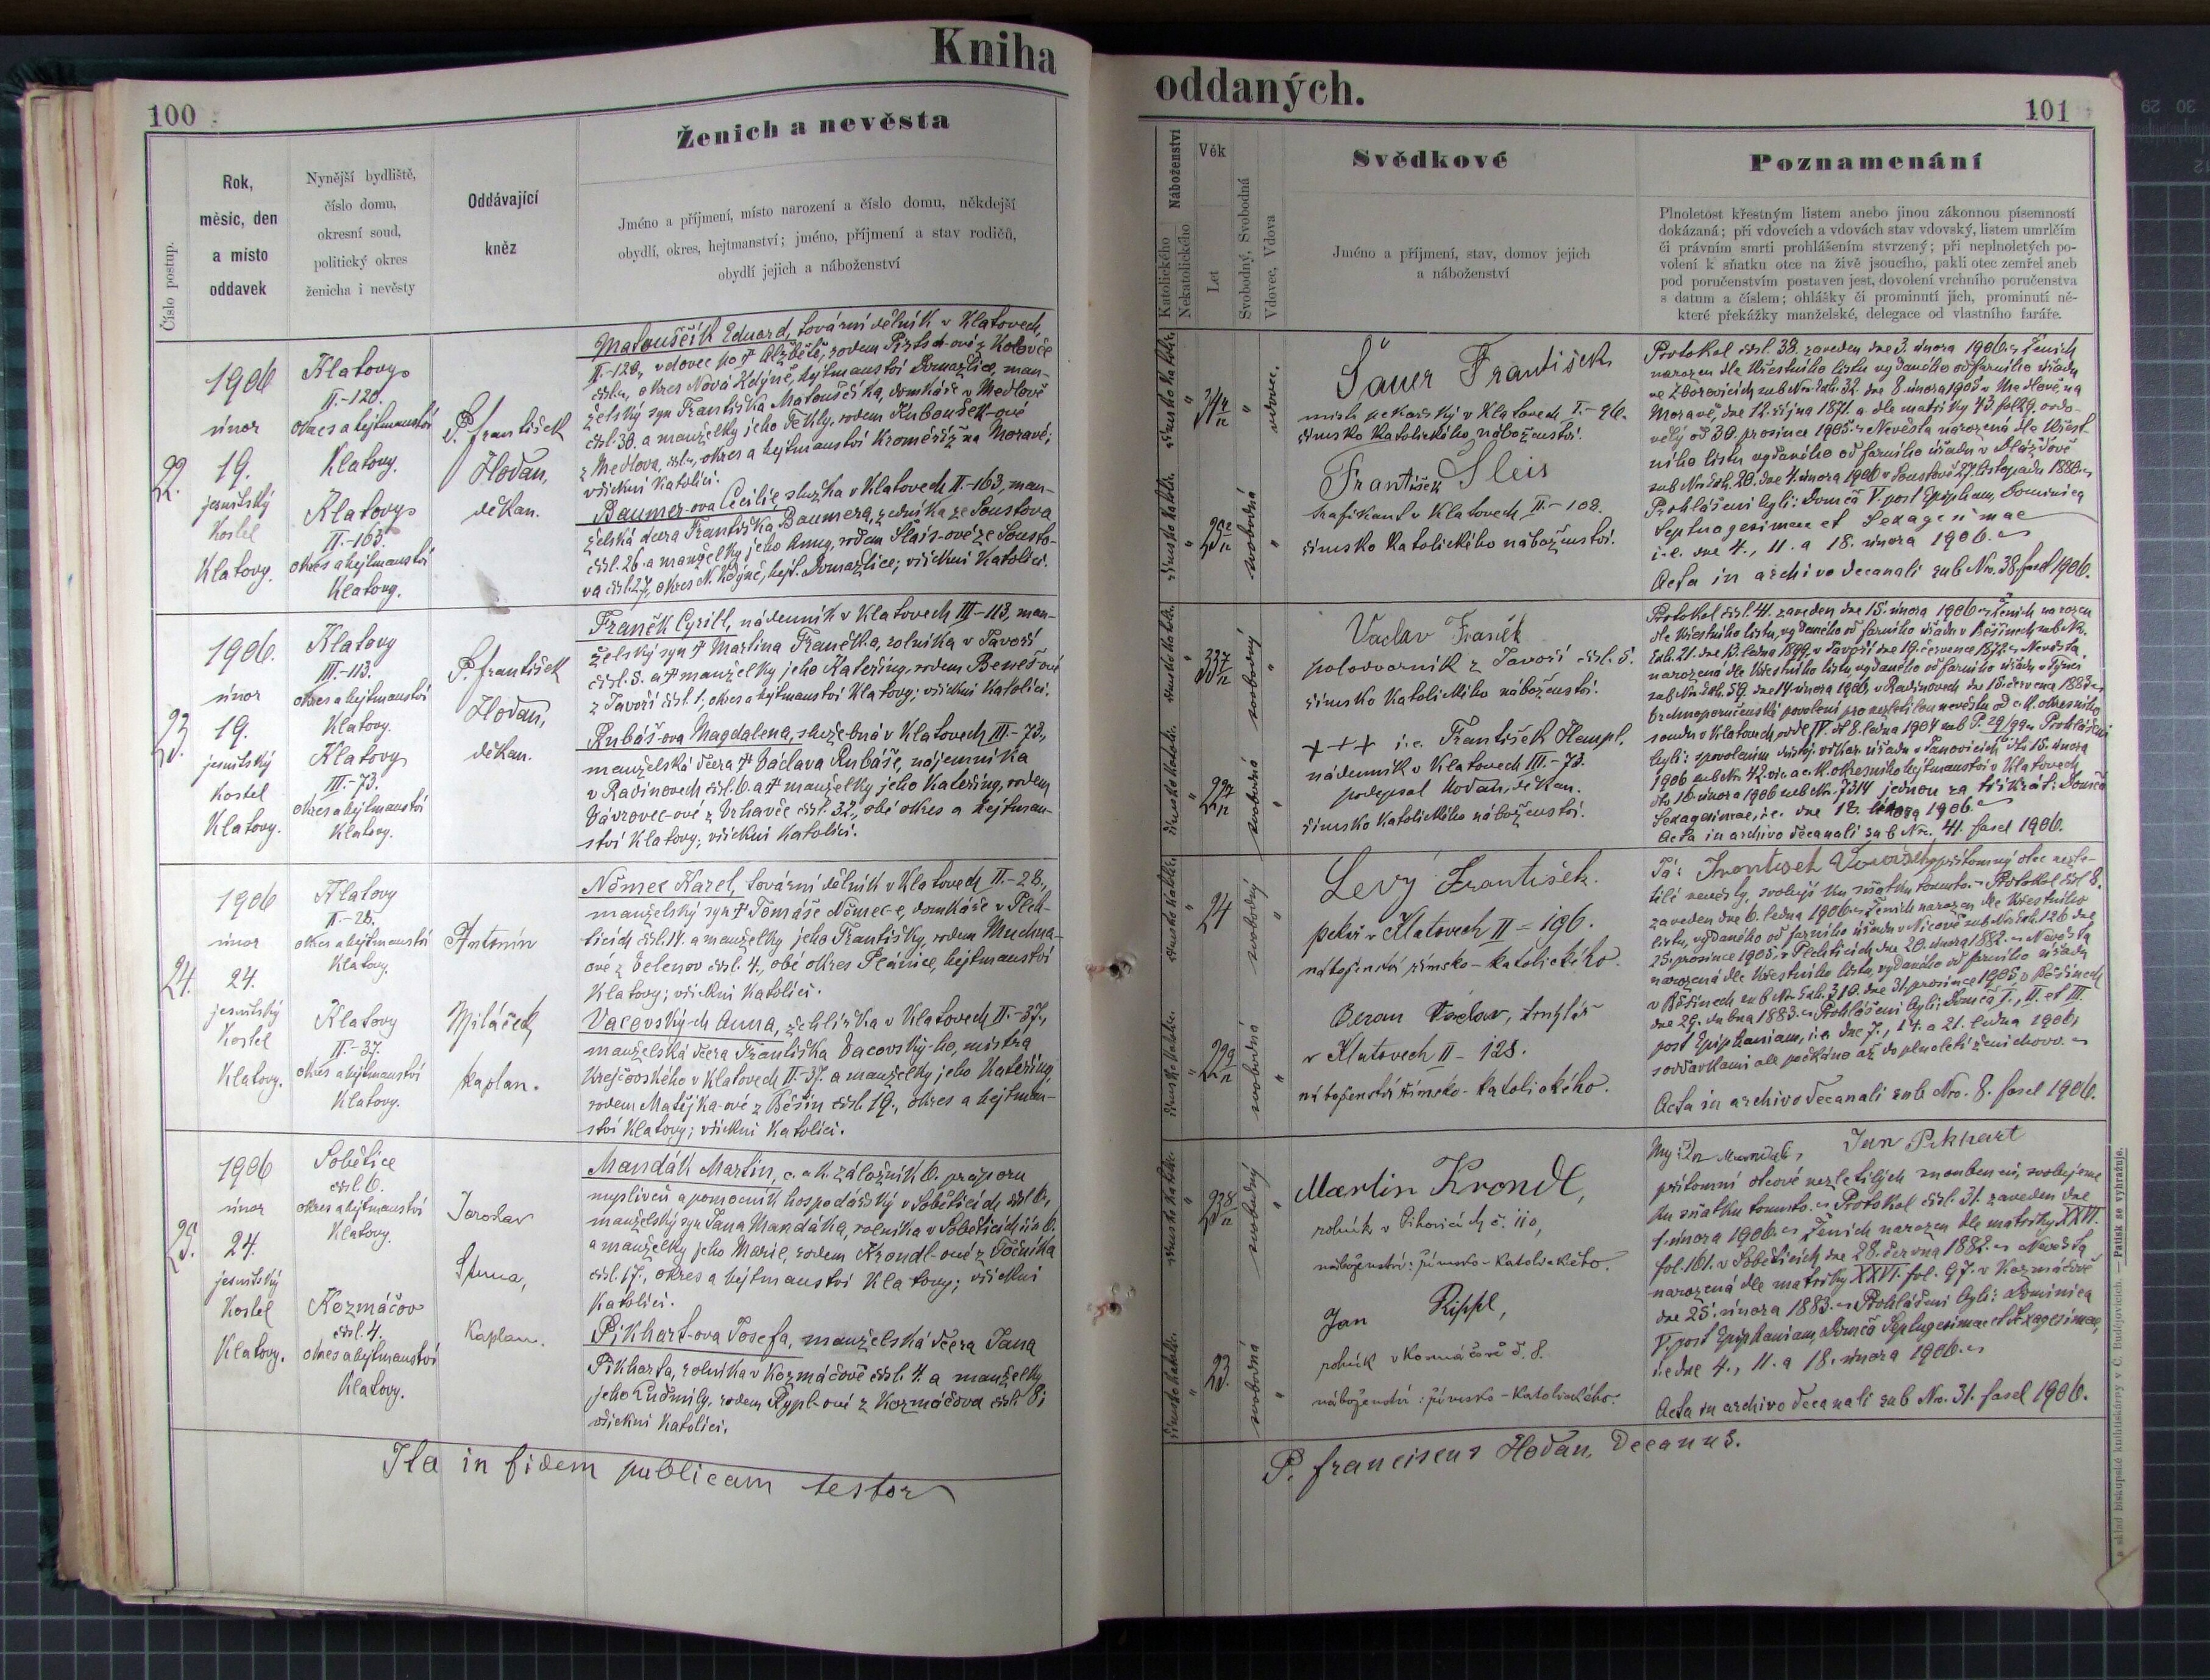 Kniha
100
Ženich a nevěsta
Číslo postup.
Rok,
měsíc, den
a místo
oddavek
Nynější bydliště,
číslo domu,
okresní soud,
politický okres
ženicha i nevěsty
Oddávající
kněz
Jméno a příjmení, místo narození a číslo domu, někdejší
obydlí, okres, hejtmanství; jméno, příjmení a stav rodičů,
obydlí jejich a náboženství
22.
1906
únor
19.
jesuitský
Kostel
Klatovy.
Klatovy
II.-120.
okres a hejtmanství
Klatovy.
Klatovy
II.-163.
okres a hejtmanství
Klatovy.
P. František
Hoďan,
děkan.
Matouščík Eduard, tovární dělník v Klatovech,
II.-120., vdovec po † Alžbětě, rodem z Koloveče
okres Nová Kdýně, hejtmanství Domažlice, man-
želský syn Františka Matouščíka, domkáře v Medlově
čísl. 30. a manželky jeho Tekly, rodem Kuboušek-ové
z Medlova, okres a hejtmanství Kroměříž na Moravě;
všickni katolíci.
Baumer-ova Cecilie, služka v Klatovech II.-163, man-
želská dcera Františka Baumera, zedníka ze Soustova
čísl. 26. a manželky jeho Anny, rodem Šlais-ové ze Sousto-
va čísl. 27, okres N. Kdýně, hejt. Domažlice; všickni katolíci.
23.
1906.
únor
19.
jesuitský
kostel
Klatovy.
Klatovy
III.-113.
okres a hejtmanství
Klatovy.
Klatovy
III.-73.
okres a hejtmanství
Klatovy.
P. František
Hoďan,
děkan.
Franěk Cyrill, nádenník v Klatovech III-113, man-
želský syn † Martina Fraňka, rolníka v Tavoří
čísl. 5. a † manželky jeho Kateřiny, rodem Beneš-ové
z Javoří čísl. 1, okres a hejtmanství Klatovy; všickni katolíci.
Rubáš-ova Magdalena, služebná v Klatovech III.-73.,
manželská dcera † Václava Rubáše, nájemníka
v Radinovech čísl. 6. a † manželky jeho Kateřiny, rodem
Vávrovec-ové z Vrhavče čísl. 32., obé okres a hejtman-
ství Klatovy; všickni katolíci.
24.
1906
únor
24.
jesuitský
Kostel
Klatovy.
Klatovy
II.-28.
okres a hejtmanství
Klatovy.
Klatovy
II.-37.
okres a hejtmanství
Klatovy.
Antonín
Miláček,
kaplan.
Němec Karel, tovární dělník v Klatovech II.-28.,
manželský syn † Tomáše Němec-e, domkáře v Plch-
ticích čísl. 14. a manželky jeho Františky, rodem Muchna-
ové z Velenov čísl. 4., obé okres Plánice, hejtmanství
Klatovy; všickni katolíci.
Vacovský-ch Anna, žehlířka v Klatovech II.-37.,
manželská dcera Františka Vacovský-ho, mistra
krejčovského v Klatovech II.-37. a manželky jeho Kateřiny,
rodem Matějka-ové z Běšin čísl. 19., okres a hejtman-
ství Klatovy; všickni katolíci.
25.
1906
únor
24.
jesuitský
Kostel
Klatovy.
Sobětice
čísl. 6.
okres a hejtmanství
Klatovy.
Kozmáčov
čísl. 4.
okres a hejtmanství
Klatovy.
Jaroslav
kaplan.
Mandák Martin, c. a k. záložník 6. praporu
myslivců a pomocník hospodářský v Soběticích čísl 6.,
manželský syn Jana Mandáka, rolníka v Soběticích čís 6.
a manželky jeho Marie, rodem Krondl-ové z Točníka
čísl. 17., okres a hejtmanství Klatovy; všickni
katolíci.
Pikhart-ova Josefa, manželská dcera Jana
Pikharta, rolníka v Kozmáčově čísl. 4. a manželky
jeho Ludmily, rodem Rypl-ové z Kozmáčova čísl. 8;
všickni katolíci.
Ita in fidem publicam testor
oddaných.
101
Náboženství
Katolického
Nekatolického
Věk
Let
Svobodný, Svobodná
Vdovec, Vdova
Svědkové
Jméno a příjmení, stav, domov jejich
a náboženství
Poznamenání
Plnoletost křestným listem anebo jinou zákonnou písemností
dokázaná; při vdovcích a vdovách stav vdovský, listem umrlčím
či právním smrti prohlášením stvrzený; při neplnoletých po-
volení k sňatku otce na živě jsoucího, pakli otec zemřel aneb
pod poručenstvím postaven jest, dovolení vrchního poručenstva
s datum a číslem; ohlášky či prominutí jich, prominutí ně-
které překážky manželské, delegace od vlastního faráře.
římsko katolic.
34 4/12
vdovec.
římsko katolic.
svobodná
Šauer František
mistr pekařský v Klatovech I.-96.
římsko katolického náboženství.
František Sleis
trafikant v Klatovech II.-108.
římsko katolického náboženství.
Protokol čísl. 38. zaveden dne 3. února 1906. Ženich
narozen dle křestního listu vydaného od farního úřadu
ve Zborovicích sub Nro Exh. 32. dne 8. února 1905 v Medlově na
Moravě, dne 12. října 1871. a dle matriky 43 fol. 29. ovdo-
vělý od 30. prosince 1905. Nevěsta narozená dle křest-
ního listu vydaného od farního úřadu v Dlažďově
sub Nro Exh. 20. dne 4. února 1906 v Soustově 27 listopadu 1880.
Prohlášeni byli: Domcâ V. post Epiphan, Dominica
Septuagesimae et Sexagesimae
i.e. dne 4., 11. a 18. února 1906.
Acta in archivo decanali sub Nro. 38 fascl 1906.
římsko katolic.
33 7/12
svobodný
římsko katolic.
svobodná
Vaclav Franěk
polodvorník z Javoří čísl. 5.
římsko katolického náboženství.
+++ i.e. František Hampl.
nádenník v Klatovech III.-73.
podepsal Hoďan, děkan.
římsko katolického náboženství.
Protokol čísl. 41. zaveden dne 15. února 1906. Ženich narozen
dle křestního listu, vydaného od farního úřadu v Běšinech sub N.
Exh. 21. dne 13. ledna 1899, v Tavoří dne 19. července 1872. Nevěsta
narozená dle křestního listu vydaného od farního úřadu v Týnci
sub Nro Exh. 59. dne 14. února 1906, v Radinovech dne 15. června 1883.
Vrchnoporučenské povolení pro nezletilou nevěstu od c. k. okresního
soudu v Klatovech, odděl IV. dt 8. ledna 1904 sub P. 29/99. Prohlášeni
byli: s povolením důstoj. vikar. úřadu v Janovicích dto 15. února
1906 sub Nr. 42. vic. a c. k. okresního hejtmanství v Klatovech
dto 16. února 1906 sub Nr. 7314 jednou za třikrát: Domcâ
Sexagesimae, i.e. dne 18. února 1906.
Acta in archivo decanali sub Nro. 41. fascl 1906.
římsko katolic.
24
svobodný
římsko katolic.
22 9/12
svobodná
Levý František.
pekař v Klatovech II = 196.
náboženství římsko-katolického.
Beran Václav, truhlář
v Klatovech II - 128.
náboženství římsko-katolického.
Já: František Vacovský, přítomný otec nezle-
tilé nevěsty, svoluji ku sňatku tomuto. - Protokol čísl 8.
zaveden dne 6. ledna 1906. Ženich narozen dle křestního
listu, vydaného od farního úřadu v Nicově sub Nro Exh. 126 dne
25. prosince 1905. v Plchticích dne 20. února 1882. Nevěsta
narozená dle křestního listu, vydaného od farního úřadu
v Běšinech sub Nro Exh. 310. dne 31. prosince 1905 v Běšinech
dne 29. dubna 1883. Prohlášeni byli: Domcâ I., II. et III.
post Epiphaniam, i.e. dne 7., 14. a 21. ledna 1906,
s oddavkami ale počkáno až do plnoletí ženichovo.
Acta in archivo decanali sub Nro. 8. fascl 1906.
římsko katolic.
23 8/12
svobodný
římsko katolic.
23.
svobodná
Martin Krondl,
rolník v č. 110,
náboženství: římsko-katolického.
Jan Rippl,
rolník v Kozmáčově č. 8.
náboženství: římsko-katolického.
My: Jan Mandák, Jan Pikhart
přítomní otcové nezletilých snoubenců, svolujeme
ku sňatku tomuto. Protokol čísl. 31. zaveden dne
1. února 1906. Ženich narozen dle matriky XXVI.
fol. 161. v Soběticích dne 28. června 1882. Nevěsta
narozená dle matriky XXVI. fol. 97. v Kozmáčově
dne 25. února 1883. Prohlášeni byli: Dominica
V. post Epiphaniam, Domcâ Septuagesimae et Sexagesimae,
i.e. dne 4., 11. a 18. února 1906.
Acta in archivo decanali sub Nro. 31. fascl 1906.
P. Franciscus Hoďan, Decanus.
a sklad biskupské knihtiskárny v Č. Budějovicích. — Patisk se vyhražuje.